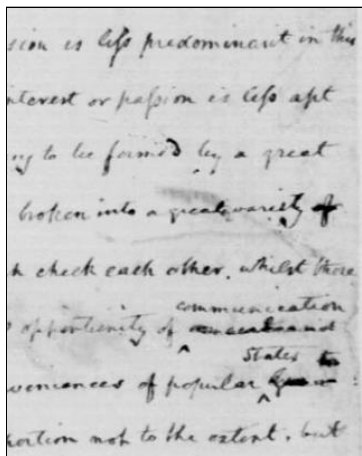 sion is less predominant in this
interest or passion is less apt
ny to be formed by a great
broken into a great variety of
h check each other, whilst those
communication
opportunity of and
States
veniences of popular
portion not to the extent, but